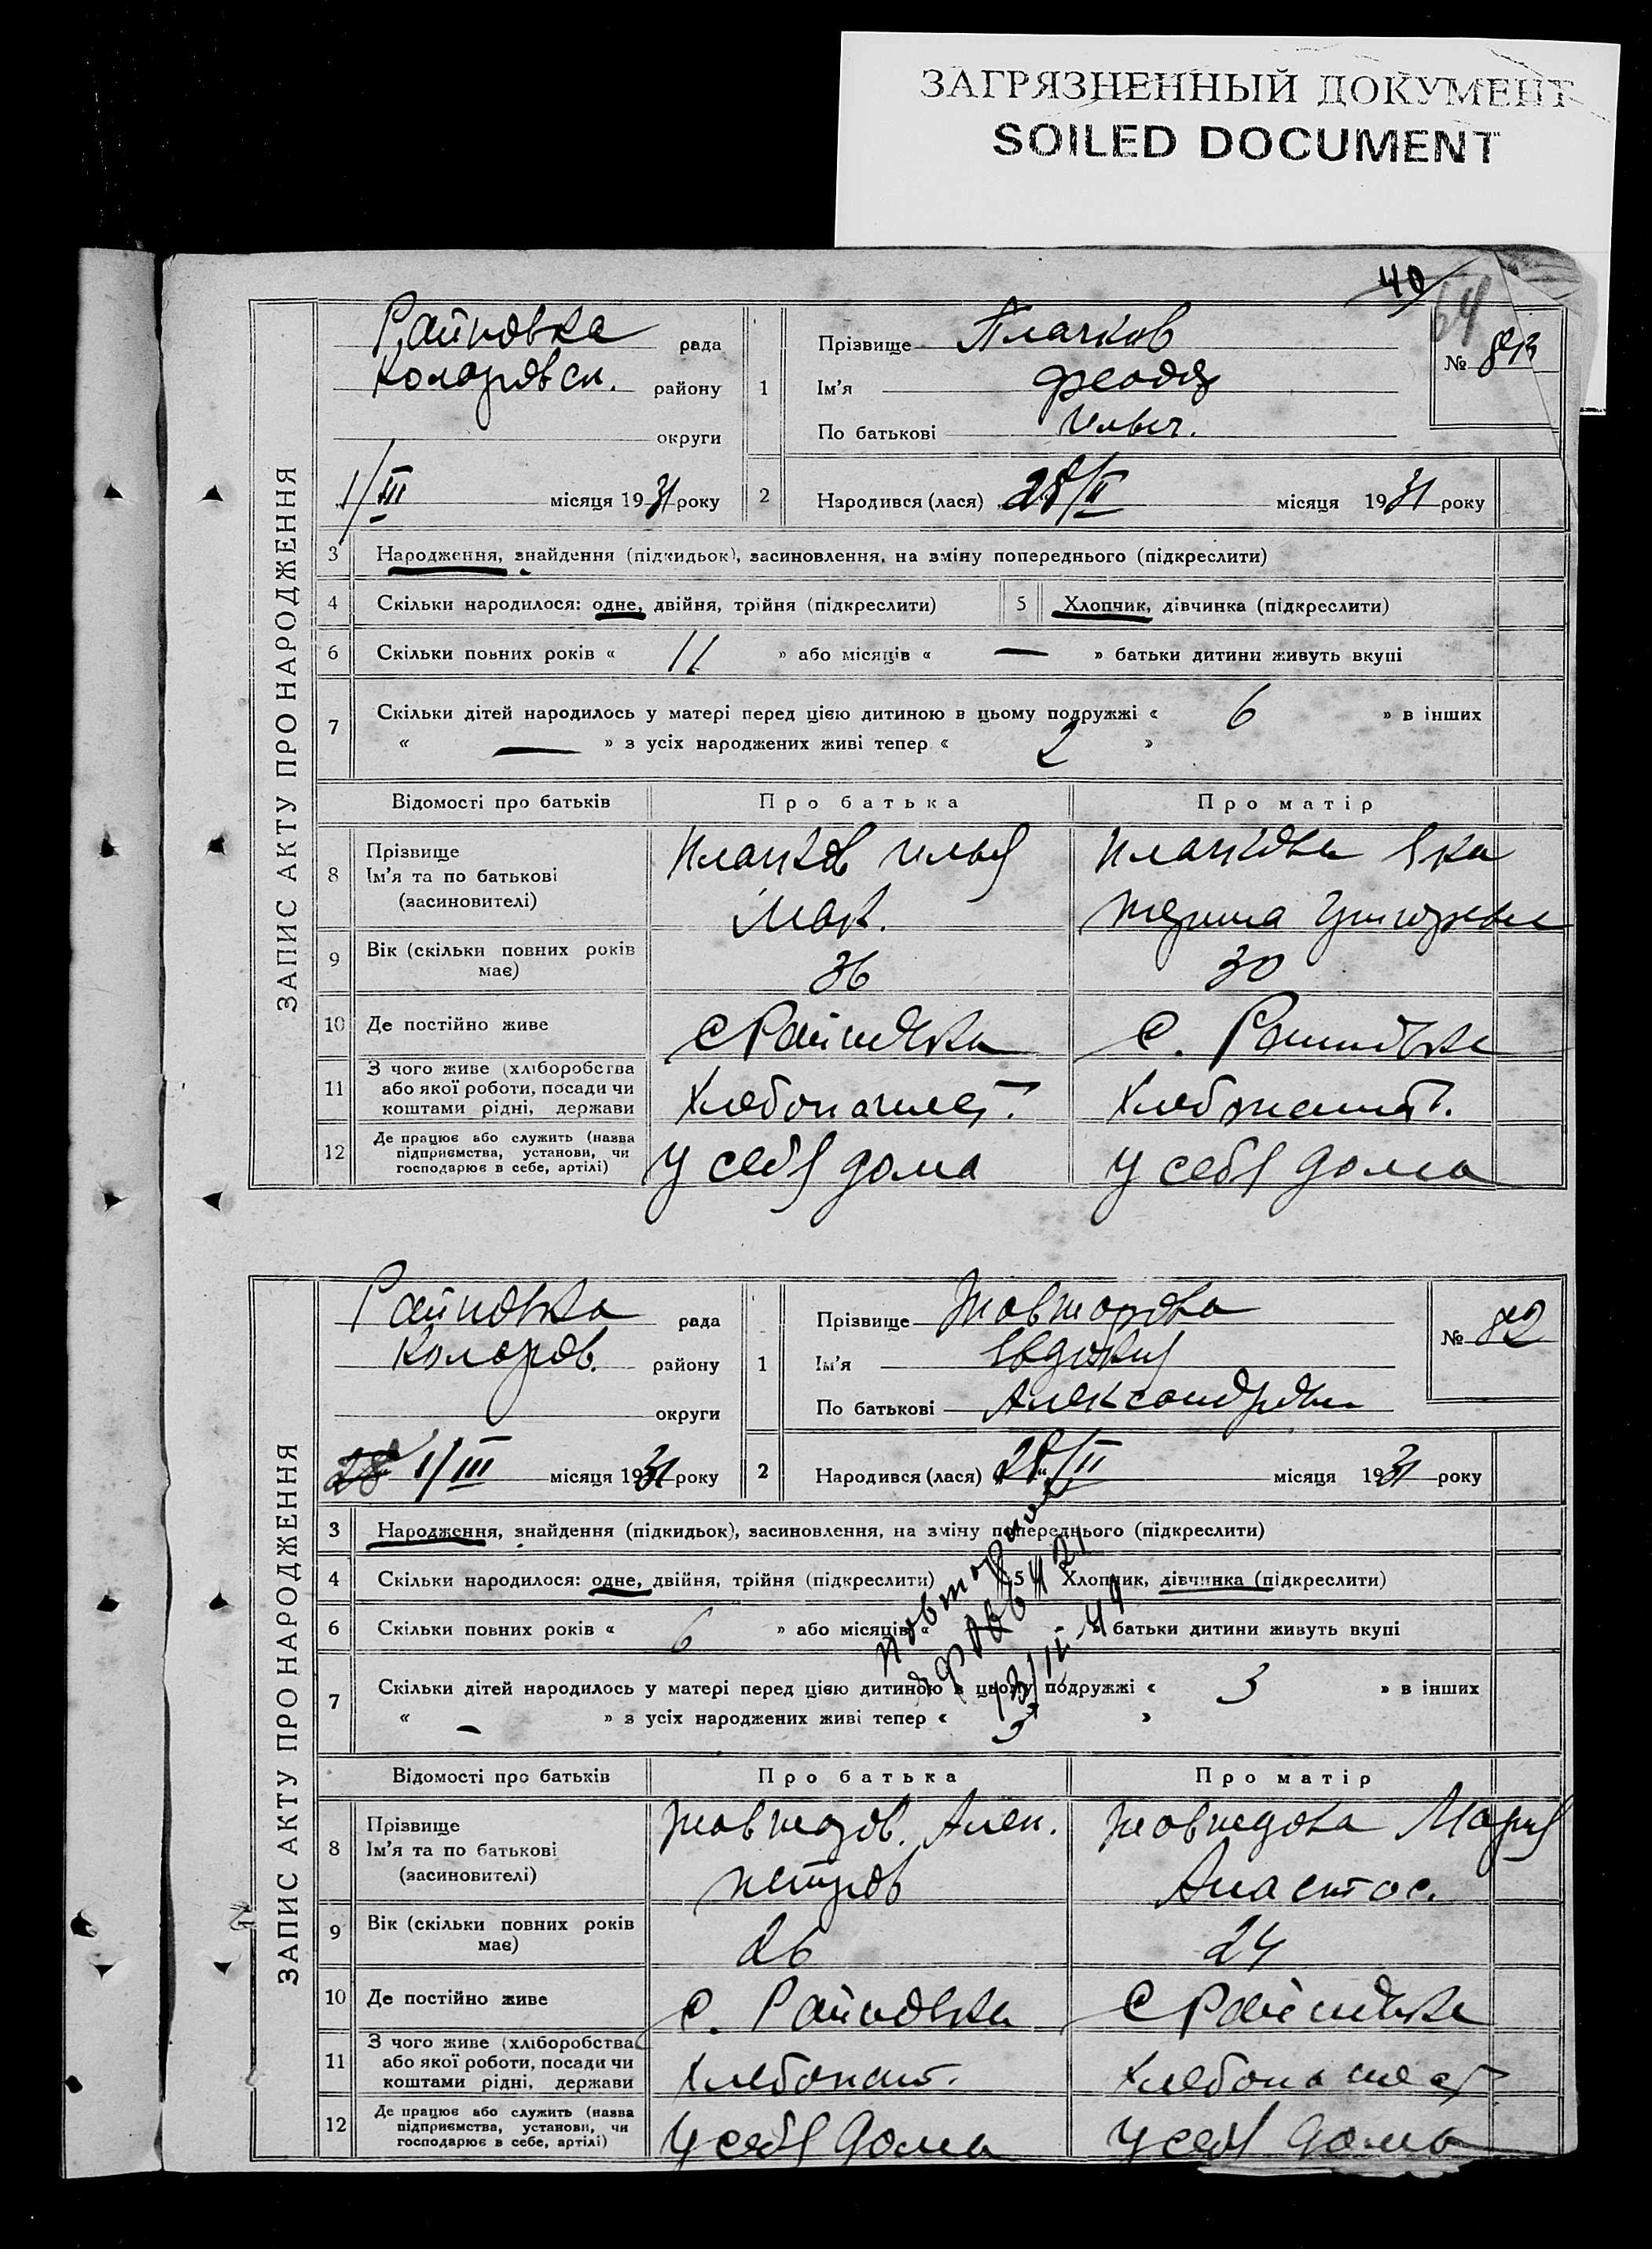 ЗАГРЯЗНЕННЫЙ ДОКУМЕНТ
SOILED DOCUMENT
40
64
ЗАПИС АКТУ ПРО НАРОДЖЕННЯ
Райновка рада
Коларовск. району
округи
1/III місяця 1931 року
1 Прізвище Плачков
Ім'я Феодор
По батькові Ильич.
№
2 Народився (лася) 28/II місяця 1931 року
3 Народження, знайдення (підкидьок), засиновлення, на зміну попереднього (підкреслити)
4 Скільки народилося: одне, двійня, трійня (підкреслити) 5 Хлопчик, дівчинка (підкреслити)
6 Скільки повних років « 11 » або місяців « — » батьки дитини живуть вкупі
7 Скільки дітей народилось у матері перед цією дитиною в цьому подружжі « 6 » в інших
« — » з усіх народжених живі тепер « 2 »
Відомості про батьків Про батька Про матір
8 Прізвище Ім'я та по батькові (засиновителі)
Плачков Илья
Плачкова Ека
терина Григорьевна
9 Вік (скільки повних років має) 36 30
10 Де постійно живе с Райновка с. Райновка
11 З чого живе (хліборобства або якої роботи, посади чи коштами рідні, держави Хлебопашест. Хлебопашест.
12 Де працює або служить (назва підприємства, установи, чи господарює в себе, артілі) У себя дома У себя дома
ЗАПИС АКТУ ПРО НАРОДЖЕННЯ
Райновка рада
Коларов. району
округи
28 1/III місяця 1931 року
1 Прізвище Товторова
Ім'я Евдокия
По батькові Александровна
№ 82
2 Народився (лася) 28/II місяця 1931 року
3 Народження, знайдення (підкидьок), засиновлення, на зміну попереднього (підкреслити)
4 Скільки народилося: одне, двійня, трійня (підкреслити) 5 Хлопчик, дівчинка (підкреслити)
6 Скільки повних років « 6 » або місяців « - » батьки дитини живуть вкупі
7 Скільки дітей народилось у матері перед цією дитиною в цьому подружжі « 3 » в інших
« - » з усіх народжених живі тепер « 3 »
Відомості про батьків Про батька Про матір
8 Прізвище Ім'я та по батькові (засиновителі)
Товторов. Алек.
Петров
Мария
Анастас.
9 Вік (скільки повних років має) 26 24
10 Де постійно живе с. Райновка с Райновка
11 З чого живе (хліборобства або якої роботи, посади чи коштами рідні, держави Хлебопаш. Хлебопашест
12 Де працює або служить (назва підприємства, установи, чи господарює в себе, артілі) У себя дома У себя дома